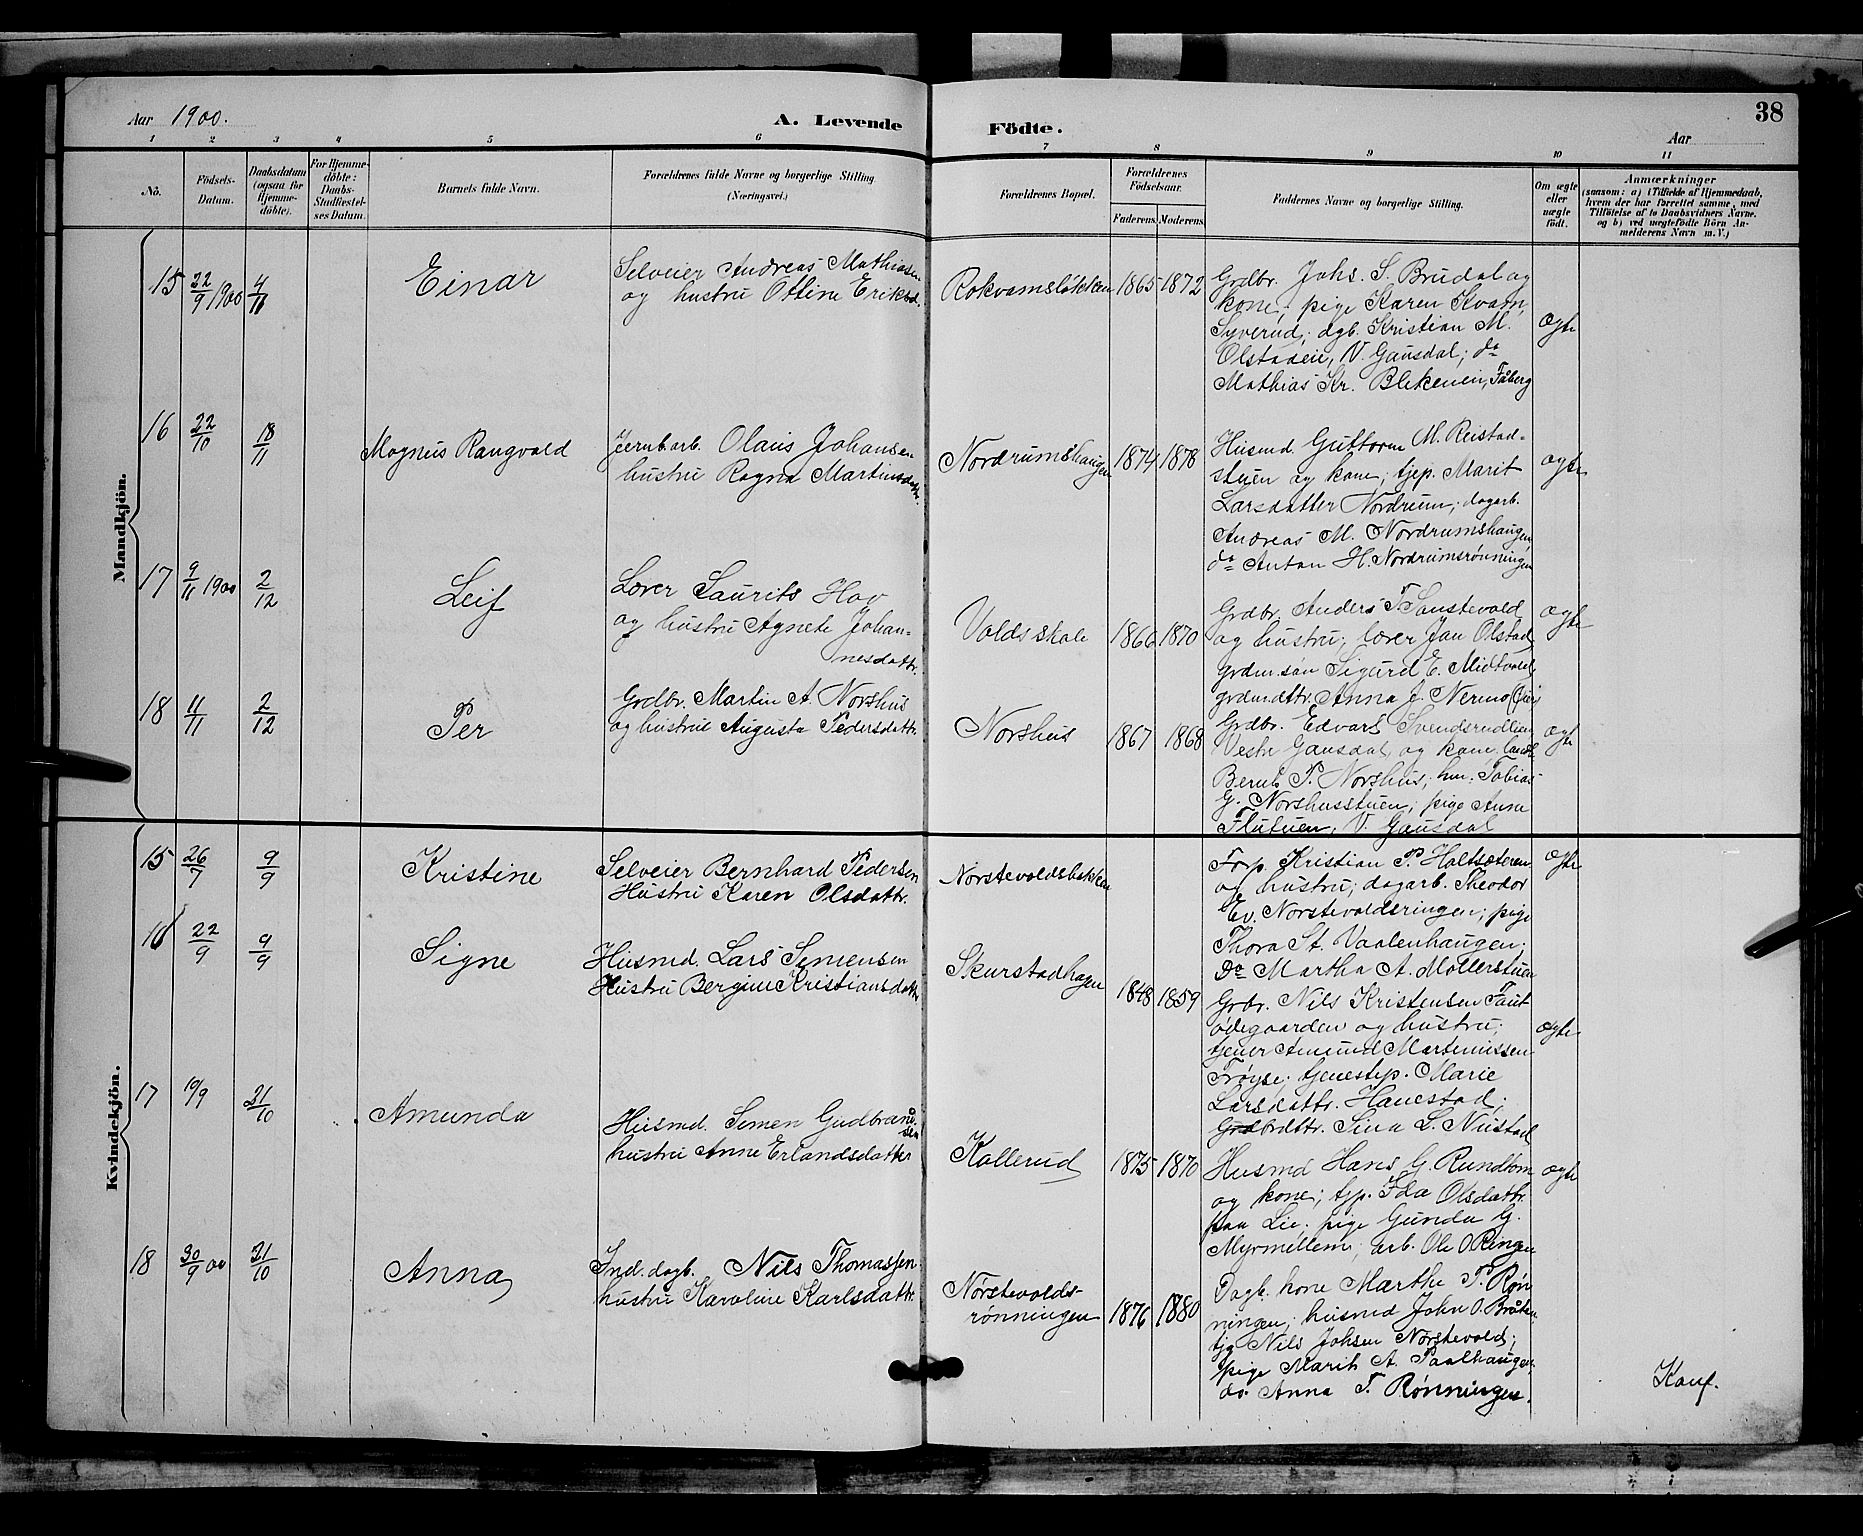 Aar 1900.
A. Levende Födte.
38
Aar
1 2 3 4 5 6 7 8 9 10 11
No.
Födsels-
Datum.
Daabsdatum
(ogsaa for
Hjemme-
döbte).
For Hjemme-
döbte:
Daabs-
Stadfæstel-
ses Datum.
Barnets fulde Navn.
Forældrenes fulde Navne og borgerlige Stilling
(Næringsvei.)
Forældrenes Bopæl.
Forældrenes
Födselsaar.
Faderens. Moderens.
Faddernes Navne og borgerlige Stilling.
Om ægte
eller
uægte
födt.
Anmærkninger
(saasom: a) i Tilfælde af Hjemmedaab,
hvem der har forrettet samme, med
Tilföielse af to Daabsvidners Navne,
og b) ved uægtefödte Börn An-
melderens Navn m. V.)
Mandkjön.
15 22/9 1900 4/11 Einar
Selveier Andreas Mathiasen
og hustru Otline Eriksd.
Rokvamsløkken 1865 1872
Grdbr. Johs. S. Brudal og
kone; pige Karen Kvam,
Syverud; dgb. Kristian M.
Olstadeie, V. Gausdal; do
Mathias Kr. Blekeneie, Fåberg
ægte
16 22/10 18/11 Magnus Rangvald
Jernb.arb. Olaus Johansen
hustru Ragna Martinsdatter.
Nordrumshaugen 1874 1878
Husmd Guttorm M. Reistad-
stuen og kone; tjep. Marit
Larsdatter Nordrum; dagarb.
Andreas M. Nordrumshaugen
do Anton H. Nordrumsrønningen
ægte
17 9/11 1900 2/12 Leif
Lærer Laurits Hov
og hustru Agnete Johan-
nesdattr.
Volds skole 1866 1870
Grdbr. Anders T. Sønstevold
og hustru; lærer Jan Olstad,
grdm.søn Sigurd E. Midtvold,
grdm.dttr. Anna J. Nermo
ægte
18 11/11 2/12 Per
Grdbr. Martin A. Norshus
og hustru Augusta Pedersdattr.
Norshus 1867 1868
Grdbr. Edvart Svendsrudlien
Vestre Gausdal, og kone;
Bernt P. Norshus; hm. Tobias
G. Norshusstuen; pige Anne
Flutuen, V. Gausdal
ægte
Kvindekjön.
15 26/7 9/9 Kristine
Selveier Bernhard Pedersen
Hustru Karen Olsdattr.
Norstevoldsbakken
Forp. Kristian P. Holtsæteren
og hustru; dagarb. Theodor
Ev. Norstevoldsringen; pige
Thora St. Vaalenhaugen;
Do Martha A. Møllerstuen
ægte
16 22/9 9/9 Signe
Husmd. Lars Simensen
Hustru Bergine Kristiansdattr
Skurstadhagen 1848 1859
Grbr. Nils Kristensen Taut
ødegaarden og hustru;
tjener Amund Martiniussen
Frøyse; tjenestep. Marie
Larsdattr. Hauestad;
Grdbrdttr. Sina L. Nustad
ægte
17 10/9 21/10 Amunda
Husmd. Simen Gudbrand-
sen
hustru Anne Erlandsdatter
Kollerud 1875 1870
Husmd Hans G. Rundtom
og kone; tjp. Ida Olsdattr.
paa Lie; pige Gunda G.
Myrmellem; arb. Ole O. Ringen
ægte
18 30/9 00 21/10 Anna
Ind. dagb. Nils Thomassen
hustru Karoline Karlsdattr.
Nørstevolds-
rønningen 1876 1880
Dagb. kone Marthe P. Røn-
ningen; husmd John O. Bråten
tjg Nils Johsen Nørstevold;
pige Marit A. Paalhaugen,
do. Anna T. Rønningen.
Konf.